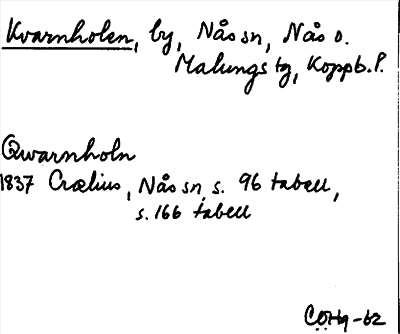 Kvarnholen, by, Nås sn, Nås o.
Malungs tg, Koppb. l.
Qwarnholn
1837 Crælius, Nås sn, s. 96 tabell,
s. 166 tabell
-62